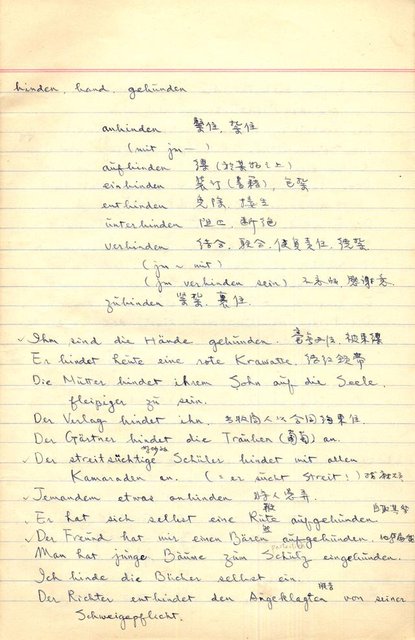 binden, band, gebunden
anbinden 繫住, 紮住
(mit jm —)
aufbinden 縛(於某物之上)
einbinden 裝訂(書籍), 包紮
entbinden 免除, 接生
unterbinden 阻止, 斷絕
verbinden 結合, 聯合, 使負責任, 繞紮
(jn ~ mit)
(jm verbinden sein)
zubinden 紮, 裹住
✓ Ihm sind die Hände gebunden.
Er bindet heute eine rote Krawatte. 結紅領帶
Die Mutter bindet ihrem Sohn auf die Seele,
fleißiger zu sein.
Der Verlag bindet ihn. 出版商人以合同拘束住
Der Gärtner bindet die Trauben (葡萄) an.
✓ Der streitsüchtige Schüler bindet mit allen
Kamaraden an. (= er sucht Streit!)
✓ Jemandem etwas anbinden
✓ Er hat sich selbst eine Rute aufgebunden.
✓ Der Freund hat mir einen Bären aufgebunden.
Man hat junge Bäume zum Schutz eingebunden.
Ich binde die Bücher selbst ein.
Der Richter entbindet den Angeklagten von seiner
Schweigepflicht.